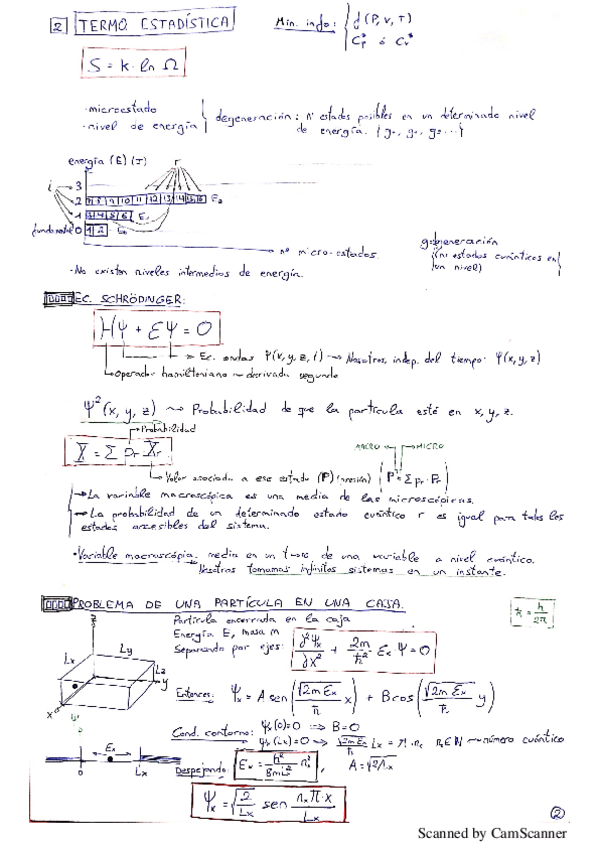 2 TERMO. ESTADÍSTICA
Min. info: { f(P, V, T)
Cp* ó Cv*
S = k · ln Ω
· microestado
· nivel de energía
degeneración: nº estados posibles en un determinado nivel
de energía. { g₀, g₁, g₂ ... }
energía (E) (J)
r
i
3
2 7 8 9 10 11 12 13 14 15 16 E₂
1 3 4 5 6 E₁
fundamental 0 1 2 E₀
nº micro-estados
g: degeneración
(nº estados cuánticos en
un nivel)
· No existen niveles intermedios de energía.
EC. SCHRÖDINGER:
Hψ + Eψ = 0
Ec. ondas Ψ(x, y, z, t) → Nosotros, indep. del tiempo: Ψ(x, y, z)
Operador hamiltoniano ~ derivada segunda
Ψ²(x, y, z) ⇝ Probabilidad de que la partícula esté en x, y, z.
Probabilidad
X = Σ pr Xr
MACRO MICRO
Valor asociado a ese estado (P) (presión) (P = Σ pr · Pr)
→ La variable macroscópica es una media de las microscópicas.
→ La probabilidad de un determinado estado cuántico r es igual para todos los
estados accesibles del sistema.
· Variable macroscópica: media en un de una variable a nivel cuántico.
Nosotros tomamos infinitos sistemas en un instante.
PROBLEMA DE UNA PARTÍCULA EN UNA CAJA.
ħ = h/2π
Partícula encerrada en la caja
Energía E, masa m
Separando por ejes: ∂²Ψx/∂x² + 2m/ħ² Ex · Ψ = 0
z
Lx
Ly
Lz
y
x
Entonces: Ψx = A sen(√(2m Ex)/ħ x) + B cos(√(2m Ex)/ħ y)
Cond. contorno: Ψx(0) = 0 ⟹ B = 0
Ψx(Lx) = 0 ⟹ √(2m Ex)/ħ Lx = π · nx nx ∈ N → número cuántico
Ex
0
Lx
Despejando: Ex = h²/8mLx² nx², A = √2/Lx
Ψx = √(2/Lx) sen (nx π · x)/Lx
2
Scanned by CamScanner